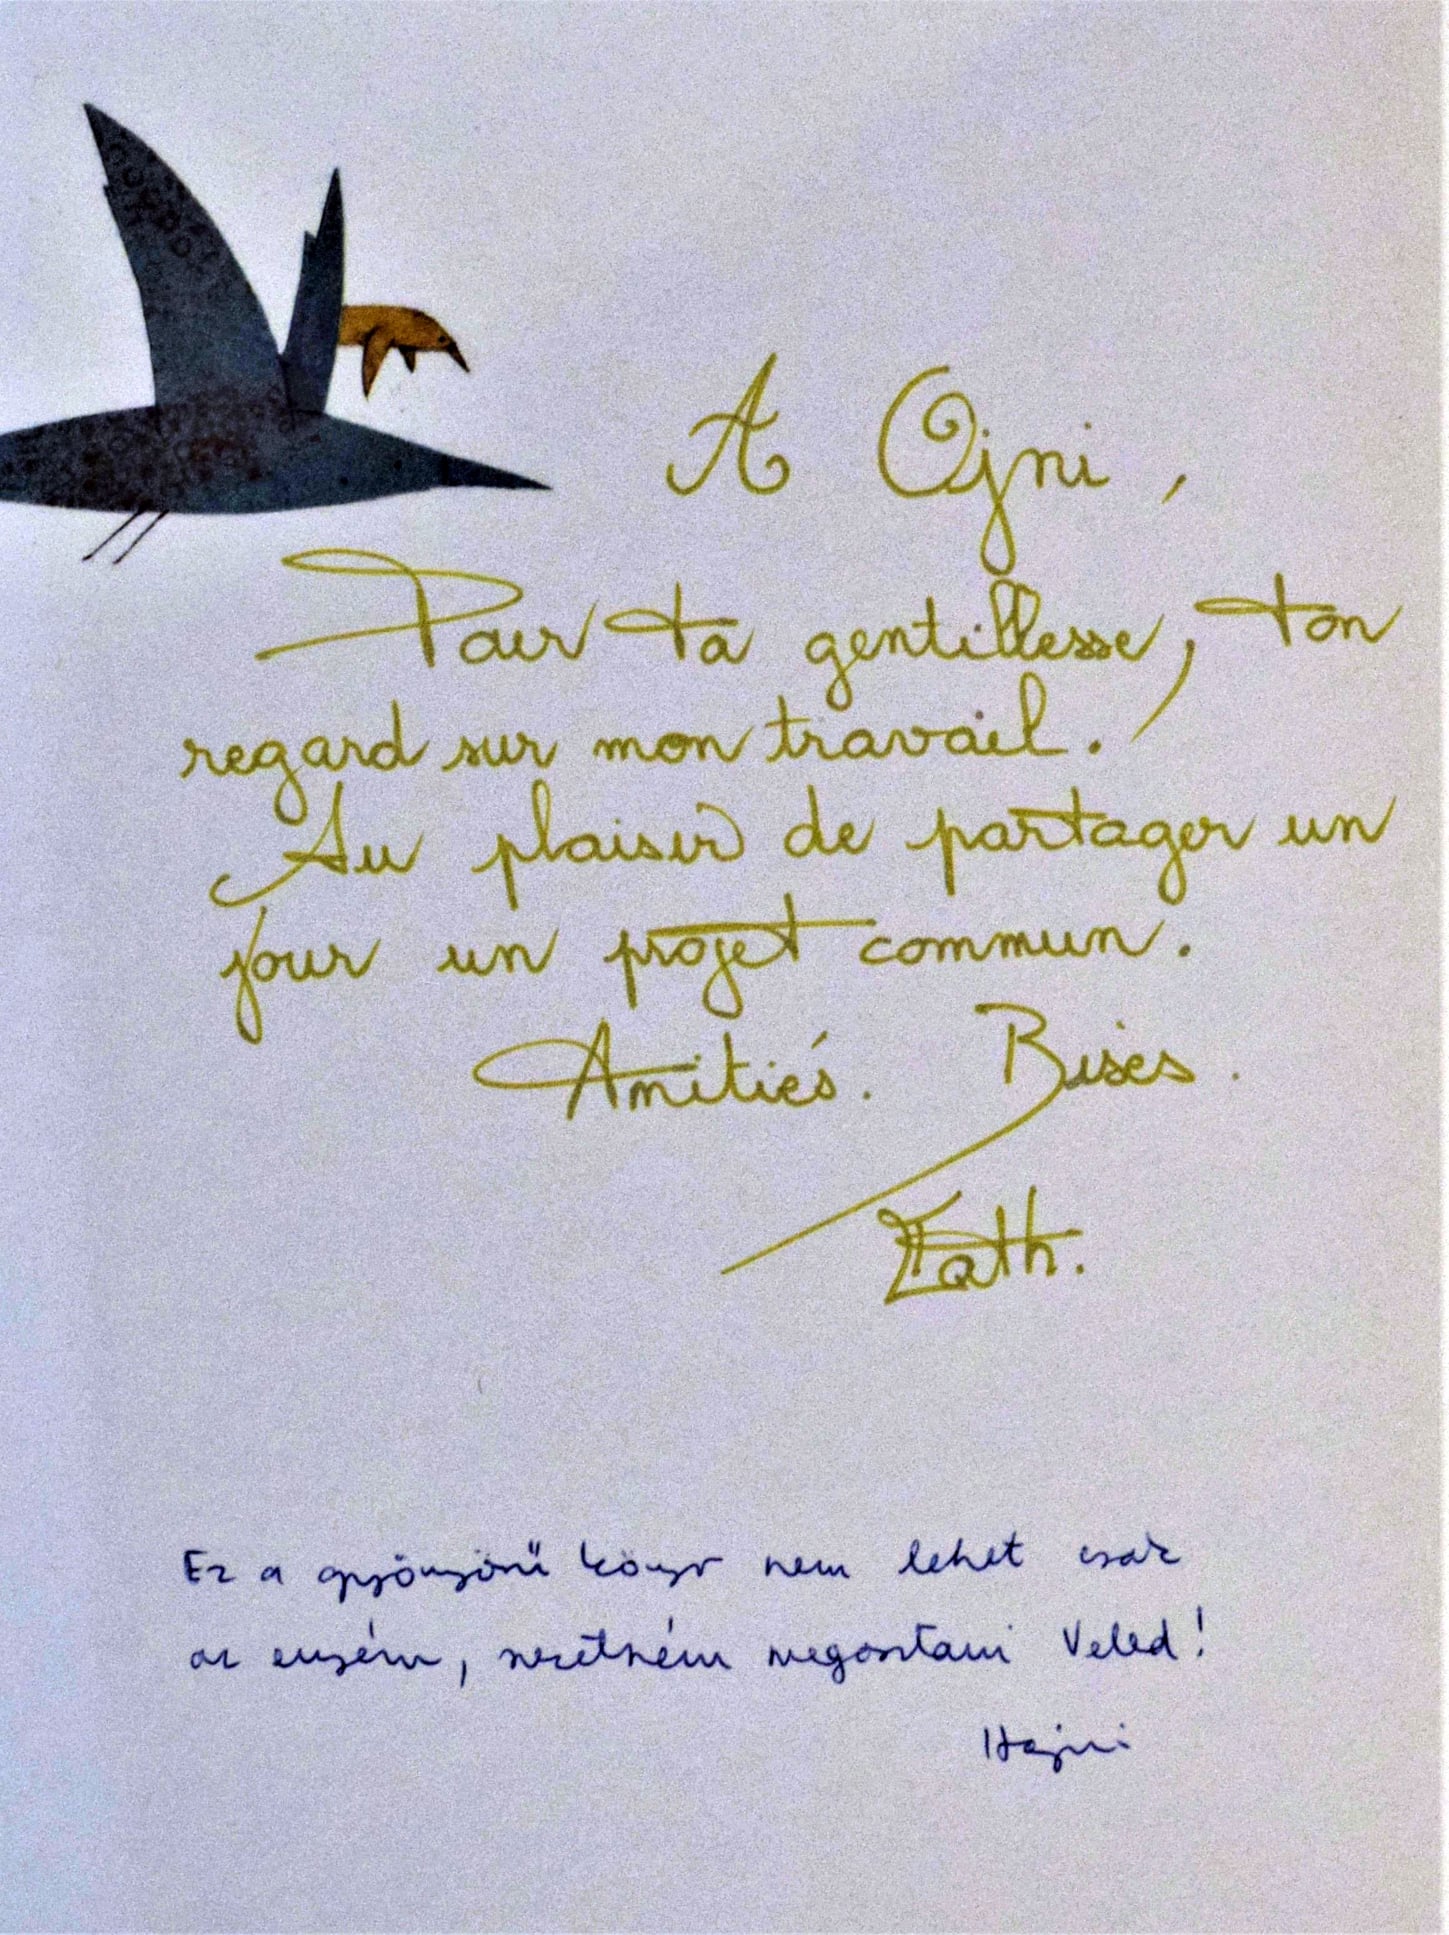 A Ojni,
Pour ta gentillesse, ton
regard sur mon travail.
Au plaisir de partager un
jour un projet commun.
Amitiés. Bises.
Kath.
Ez a gyönyörű könyv nem lehet csak
az enyém, szeretném megosztani Veled!
Hajni